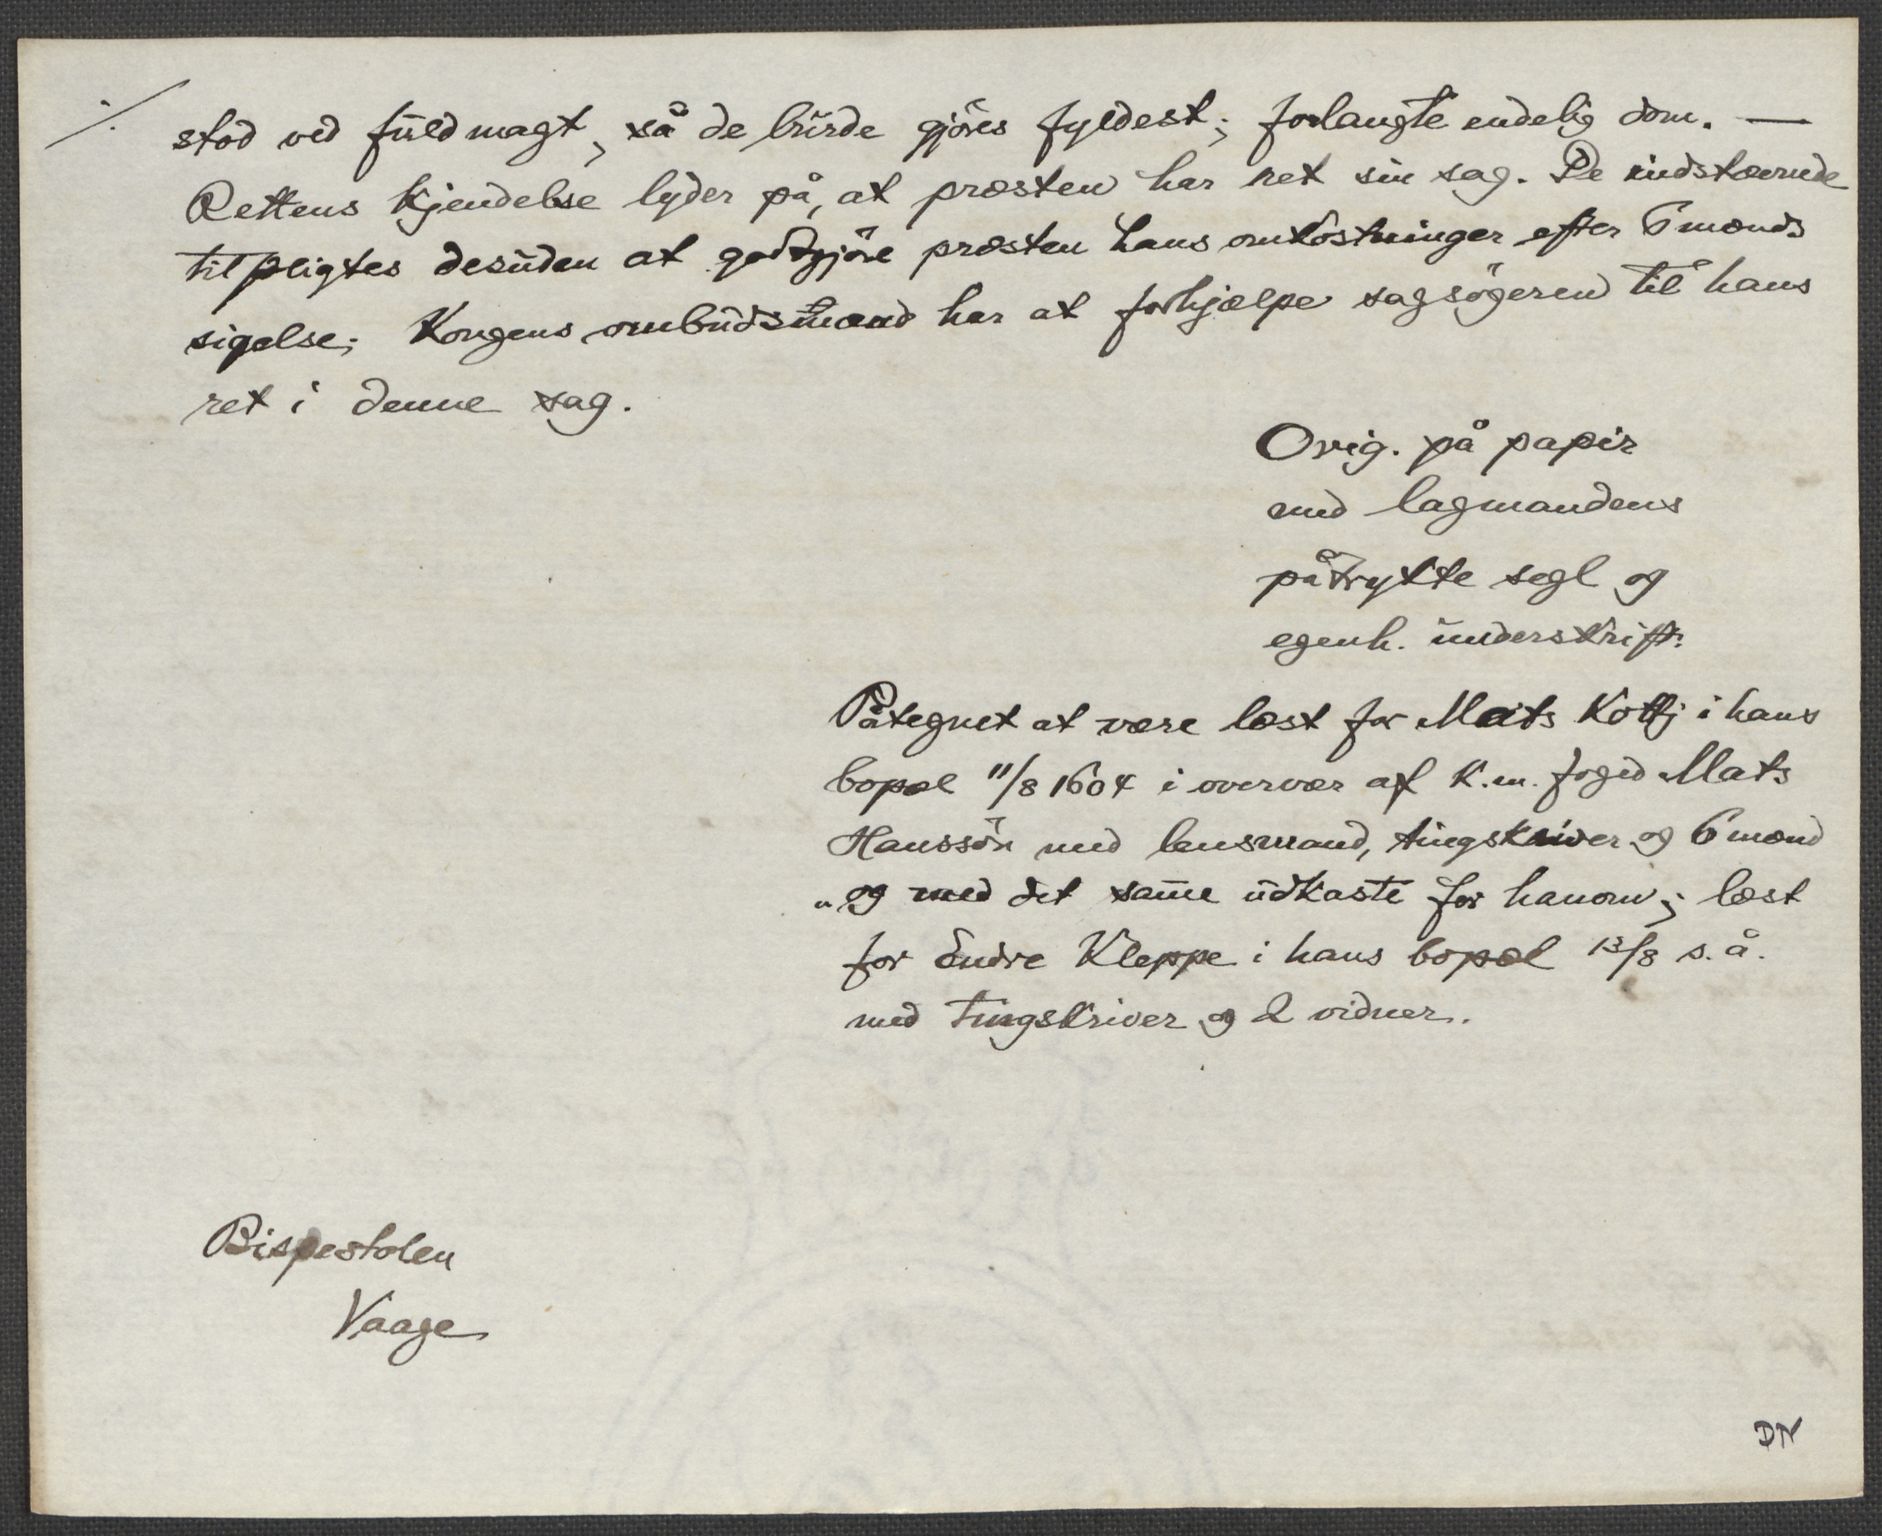 ·/.
stod ved fuldmagt, så de burde gjöres fyldest; forlangte endelig dom. —
Rettens kjendelse lyder på, at præsten har ret sin sag. De indstævnede
tilpligtes desuden at godtgjöre præsten hans omkostninger efter 6 mænds
sigelse; Kongens ombudsmænd har at forhjælpe sagsögeren til hans
ret i denne sag.
Orig. på papir
med lagmandens
påtrykte segl og
egenh. underskrift.
Påtegnet at være læst for Mats i hans
bopæl 11/8 1604 i overvær af K.m. foged Mats
Hanssön med lensmand, tingskriver og 6 mænd
„og med det same udkaste for hanom; læst
for Endre Kleppe i hans bopæl 13/8 s. å.
med tingskriver og 2 vidner.
Bispestolen
Vaage
DN